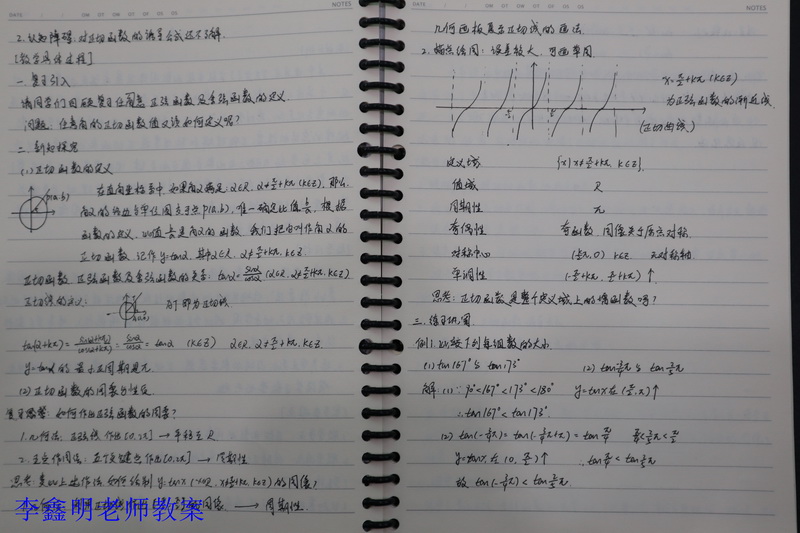 NOTES
2. 认知障碍：对正切函数的
[教学具体过程]
一. 复习引入
请同学们回顾复习任意角正弦函数及余弦函数的定义.
问题：任意角的正切函数值又该如何定义呢？
二. 新知探究
(1) 正切函数的定义
P(a, b)
在直角坐标系中, 如果角α满足：α∈R, α≠π/2+kπ (k∈Z), 那么,
角α的终边与单位圆交于点P(a,b), 唯一确定比值b/a, 根据
函数的定义, 比值b/a是角α的函数, 我们把它叫作角α的
正切函数, 记作y=tanα, 其中α∈R, α≠π/2+kπ, k∈Z.
正切函数, 正弦函数及余弦函数的关系：tanα=sinα/cosα (α∈R, α≠π/2+kπ, k∈Z)
正切线的定义：
AT 即为正切线
tan(α+kπ)=sin(α+kπ)/cos(α+kπ)=sinα/cosα=tanα (k∈Z) α∈R, α≠π/2+kπ, k∈Z.
y=tanα的最小正周期是π
(2) 正切函数的图象与性质
如何作出正弦函数的图象？
1. 几何法, 正弦线作出[0,2π] → 平移至R
2. 五点作图法, 五个关键点作出[0,2π] → 周期性
思考：类比上述作法如何绘制y=tanx (x∈R, x≠π/2+kπ, k∈Z)的图像？
图像 → 周期性.
李鑫明老师教案
NOTES
几何画板展示正切线的画法
2. 描点绘图：误差较大, 可画草图.
x=π/2+kπ (k∈Z)
为正弦函数的渐近线.
(正切曲线)
定义域 {x|x≠π/2+kπ, k∈Z}.
值域 R
周期性 π
奇偶性 奇函数, 图像关于原点对称.
对称中心 (kπ/2, 0) k∈Z 无对称轴
单调性 (-π/2+kπ, π/2+kπ) ↑
思考：正切函数是整个定义域上的增函数吗？
三. 练习巩固
例1. 比较下列每组数的大小.
(1) tan167°与tan173°
解：(1) ∵ 90°<167°<173°<180° y=tanx在(π/2, π)↑
∴ tan167°<tan173°.
y=tanx在(0, π/2)↑